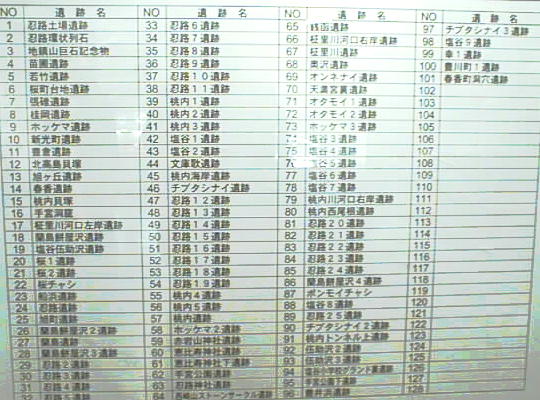 NO 遺跡名 NO 遺跡名 NO 遺跡名 NO 遺跡名
1 忍路土場遺跡 33 忍路6遺跡 65 銭函遺跡 97 チブタシナイ3遺跡
2 忍路環状列石 34 忍路7遺跡 66 柾里川河口右岸遺跡 98 塩谷9遺跡
3 地鎮山巨石記念物 35 忍路8遺跡 67 柾里川遺跡 99 幸1遺跡
4 苗圃遺跡 36 忍路9遺跡 68 奥沢遺跡 100 豊川町1遺跡
5 若竹遺跡 37 忍路10遺跡 69 オンネナイ遺跡 101 春香町洞穴遺跡
6 桜町台地遺跡 38 忍路11遺跡 70 天満宮裏遺跡 102
7 張碓遺跡 39 桃内1遺跡 71 オタモイ1遺跡 103
8 桂岡遺跡 40 桃内2遺跡 72 オタモイ2遺跡 104
9 ホッケマ遺跡 41 桃内3遺跡 73 ホッケマ3遺跡 105
10 新光町遺跡 42 塩谷1遺跡 74 塩谷3遺跡 106
11 豊倉遺跡 43 塩谷2遺跡 75 塩谷4遺跡 107
12 北高島貝塚 44 文庫歌遺跡 76 塩谷5遺跡 108
13 旭ヶ丘遺跡 45 桃内海岸遺跡 77 塩谷6遺跡 109
14 春香遺跡 46 チブタシナイ遺跡 78 塩谷7遺跡 110
15 桃内貝塚 47 忍路12遺跡 79 桃内川河口右岸遺跡 111
16 手宮洞窟 48 忍路13遺跡 80 桃内西尾根遺跡 112
17 柾里川河口左岸遺跡 49 忍路14遺跡 81 忍路20遺跡 113
18 蘭島餅屋沢遺跡 50 忍路15遺跡 82 忍路21遺跡 114
19 塩谷伍助沢遺跡 51 忍路16遺跡 83 忍路22遺跡 115
20 桜1遺跡 52 忍路17遺跡 84 忍路23遺跡 116
21 桜2遺跡 53 忍路18遺跡 85 忍路24遺跡 117
22 桜チャシ 54 忍路19遺跡 86 蘭島餅屋沢4遺跡 118
23 船浜遺跡 55 桃内4遺跡 87 ポンモイチャシ 119
24 忍路遺跡 56 桃内5遺跡 88 塩谷8遺跡 120
25 城町遺跡 57 桃内6遺跡 89 忍路25遺跡 121
26 蘭島餅屋沢2遺跡 58 ホッケマ2遺跡 90 チブタシナイ2遺跡 122
27 蘭島遺跡 59 赤岩山神社遺跡 91 桃内トンネル上遺跡 123
28 蘭島餅屋沢3遺跡 60 恵比寿神社遺跡 92 伍助沢2遺跡 124
29 忍路2遺跡 61 恵比寿神社下遺跡 93 伍助沢3遺跡 125
30 忍路3遺跡 62 手宮公園遺跡 94 塩谷小学校グランド裏遺跡 126
31 忍路4遺跡 63 忍路神社遺跡 95 手宮公園下遺跡 127
32 忍路5遺跡 64 西崎山ストーンサークル遺跡 96 豊井浜遺跡 128